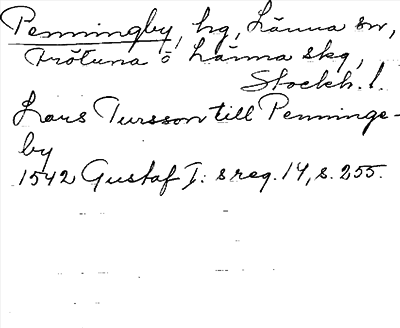 Penningby, hg, Länna sn,
Fröt​una o Länna skg,
Stockh. l.
Lars Tursson till Penninge-
by
1542 Gustaf I: s reg. 14, s. 255.